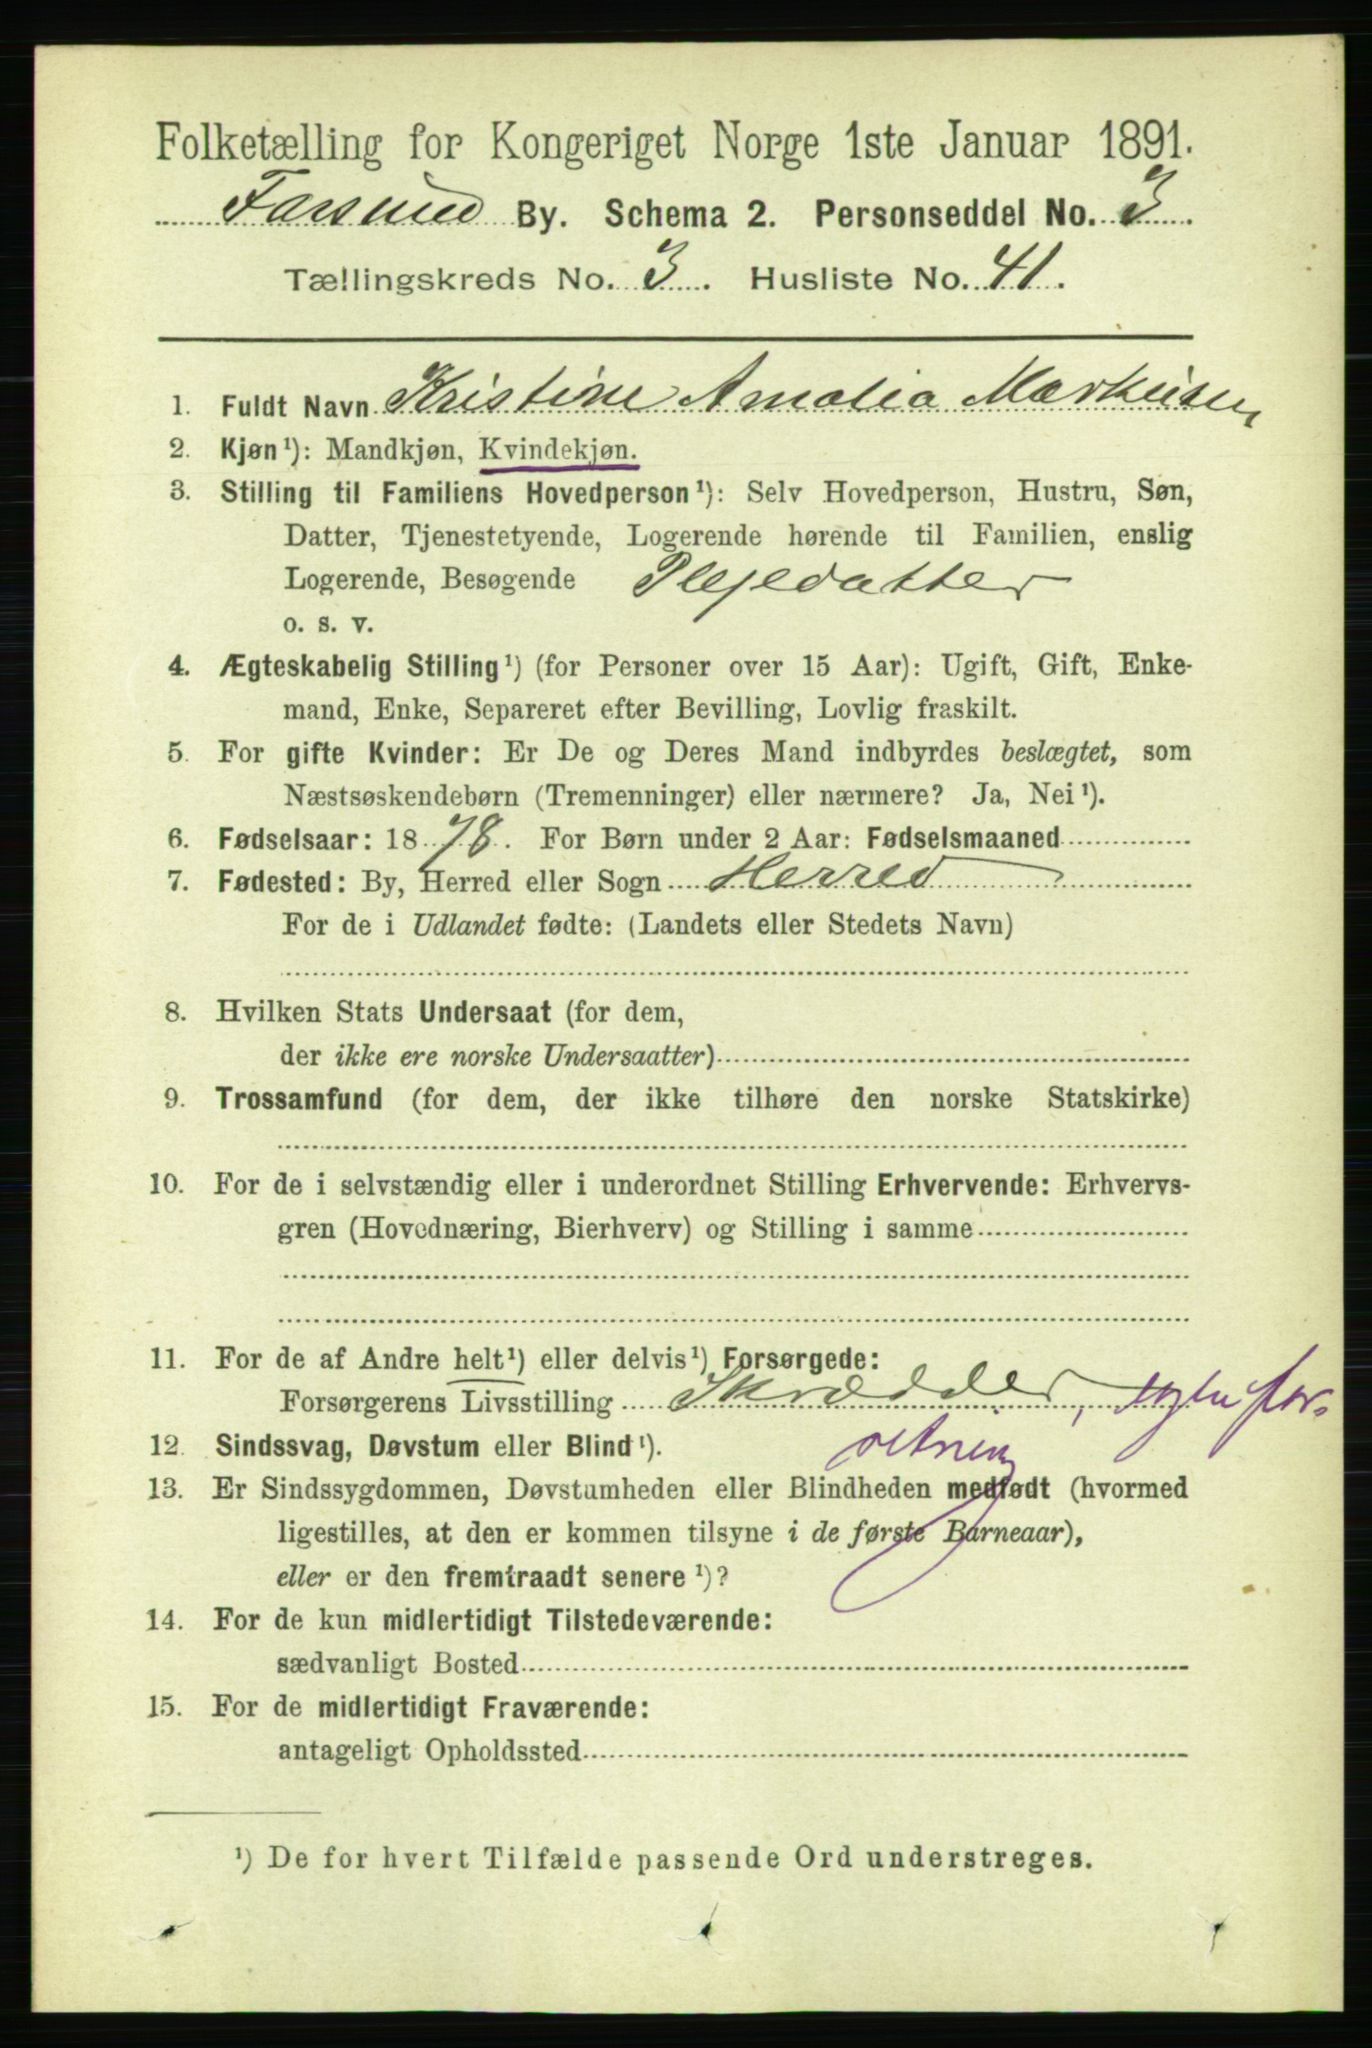 Folketælling for Kongeriget Norge 1ste Januar 1891.
Farsund By. Schema 2. Personseddel No. 3
Tællingskreds No. 3. Husliste No. 41.
1. Fuldt Navn Kristine Amalia Markusen
2. Kjøn¹): Mandkjøn, Kvindekjøn.
3. Stilling til Familiens Hovedperson¹): Selv Hovedperson, Hustru, Søn,
Datter, Tjenestetyende, Logerende hørende til Familien, enslig
Logerende, Besøgende Plejedatter
o. s. v.
4. Ægteskabelig Stilling¹) (for Personer over 15 Aar): Ugift, Gift, Enke-
mand, Enke, Separeret efter Bevilling, Lovlig fraskilt.
5. For gifte Kvinder: Er De og Deres Mand indbyrdes beslægtet, som
Næstsøskendebørn (Tremenninger) eller nærmere? Ja, Nei¹).
6. Fødselsaar: 1878. For Børn under 2 Aar: Fødselsmaaned
7. Fødested: By, Herred eller Sogn Herred
For de i Udlandet fødte: (Landets eller Stedets Navn)
8. Hvilken Stats Undersaat (for dem,
der ikke ere norske Undersaatter)
9. Trossamfund (for dem, der ikke tilhøre den norske Statskirke)
10. For de i selvstændig eller i underordnet Stilling Erhvervende: Erhvervs-
gren (Hovednæring, Bierhverv) og Stilling i samme
11. For de af Andre helt¹) eller delvis¹) Forsørgede:
Forsørgerens Livsstilling Skrædder,
12. Sindssvag, Døvstum eller Blind¹).
13. Er Sindssygdommen, Døvstumheden eller Blindheden medfødt (hvormed
ligestilles, at den er kommen tilsyne i de første Barneaar),
eller er den fremtraadt senere¹)?
14. For de kun midlertidigt Tilstedeværende:
sædvanligt Bosted
15. For de midlertidigt Fraværende:
antageligt Opholdssted
¹) De for hvert Tilfælde passende Ord understreges.